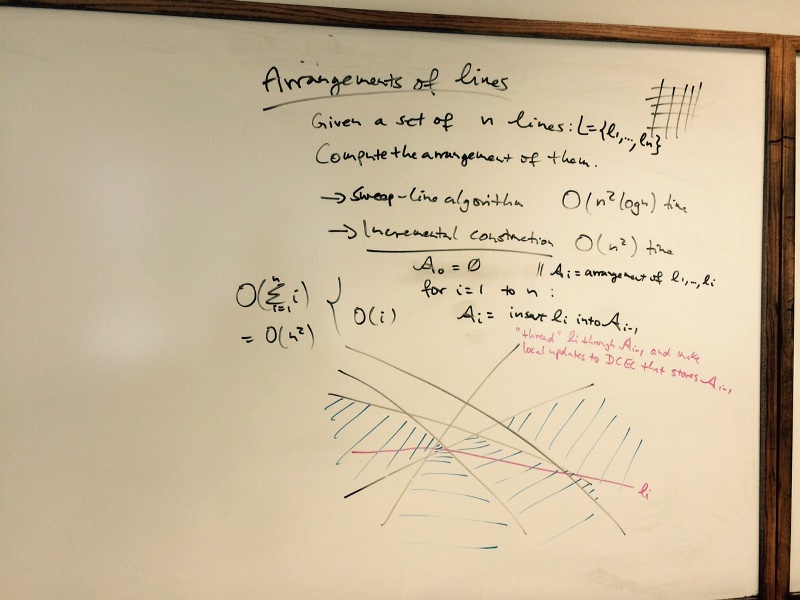 Arrangements of lines
Given a set of n lines: L={l1,...,ln}
Compute the arrangement of them.
→ Sweep-line algorithm O(n² log n) time
→ Incremental construction O(n²) time
A0 = ∅ // Ai = arrangement of l1,...,li
for i=1 to n :
Ai = insert li into Ai-1
"thread" li through Ai-1 and make
local updates to DCEL that stores Ai-1
O(∑ⁿi=1 i) { O(i)
= O(n²)
li